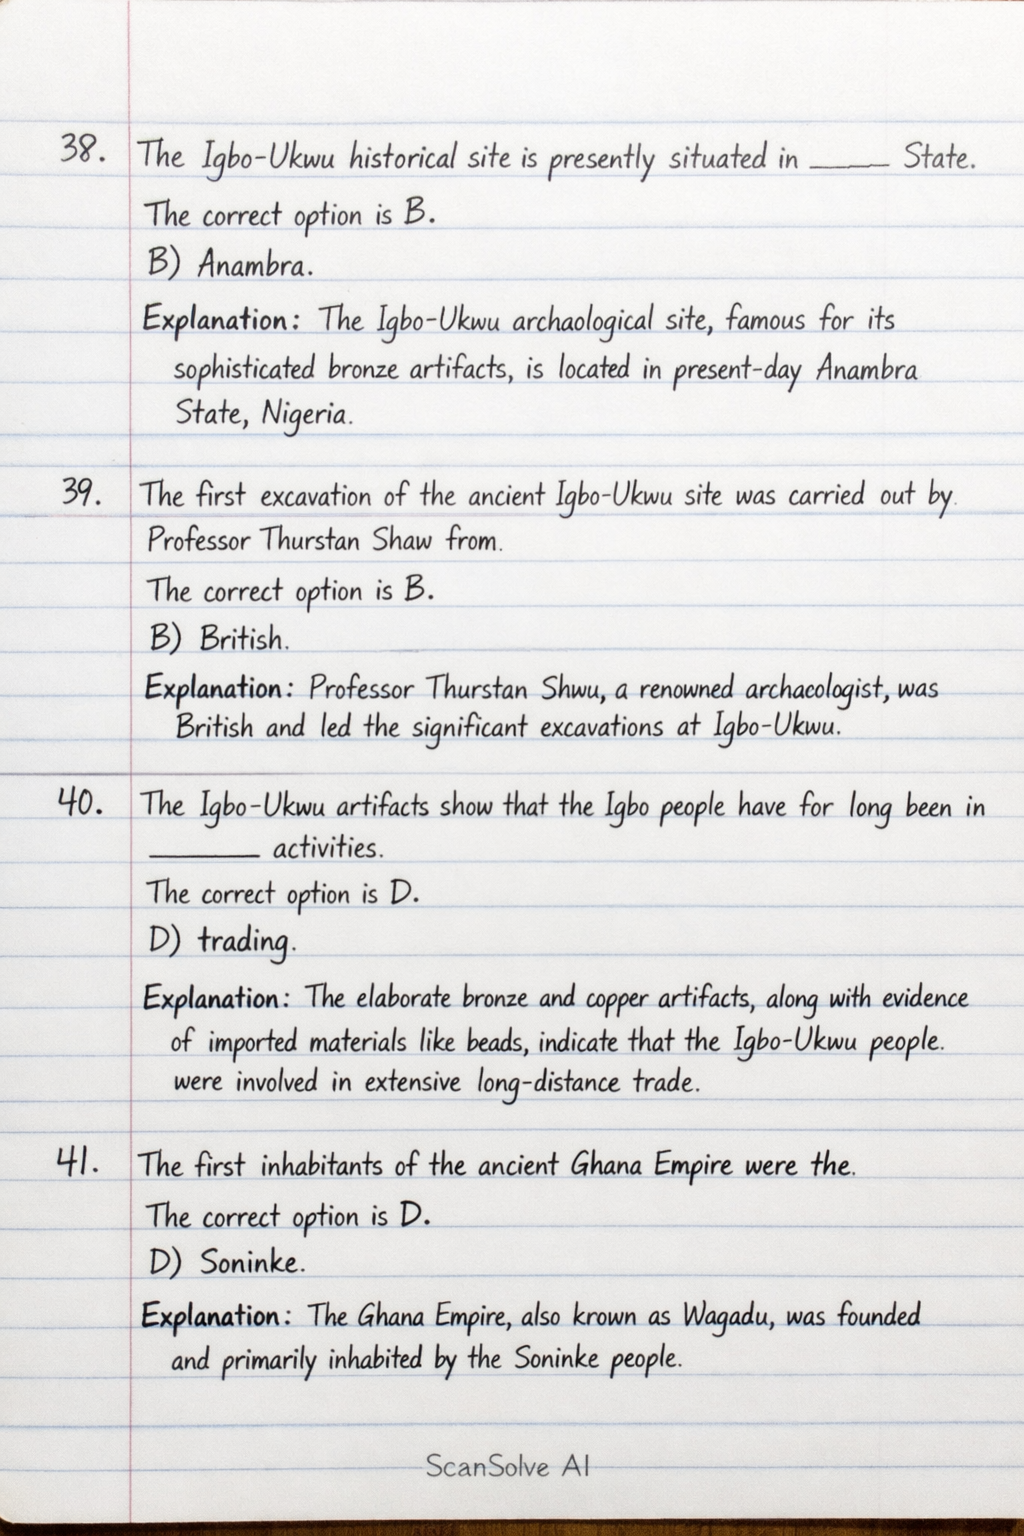 38. The Igbo-Ukwu historical site is presently situated in _____ State.
The correct option is B.
B) Anambra.
Explanation: The Igbo-Ukwu archaological site, famous for its
sophisticated bronze artifacts, is located in present-day Anambra
State, Nigeria.
39. The first excavation of the ancient Igbo-Ukwu site was carried out by.
Professor Thurstan Shaw from.
The correct option is B.
B) British.
Explanation: Professor Thurstan Shwu, a renowned archacologist, was
British and led the significant excavations at Igbo-Ukwu.
40. The Igbo-Ukwu artifacts show that the Igbo people have for long been in
_______ activities.
The correct option is D.
D) trading.
Explanation: The elaborate bronze and copper artifacts, along with evidence
of imported materials like beads, indicate that the Igbo-Ukwu people.
were involved in extensive long-distance trade.
41. The first inhabitants of the ancient Ghana Empire were the.
The correct option is D.
D) Soninke.
Explanation: The Ghana Empire, also known as Wagadu, was founded
and primarily inhabited by the Soninke people.
ScanSolve AI